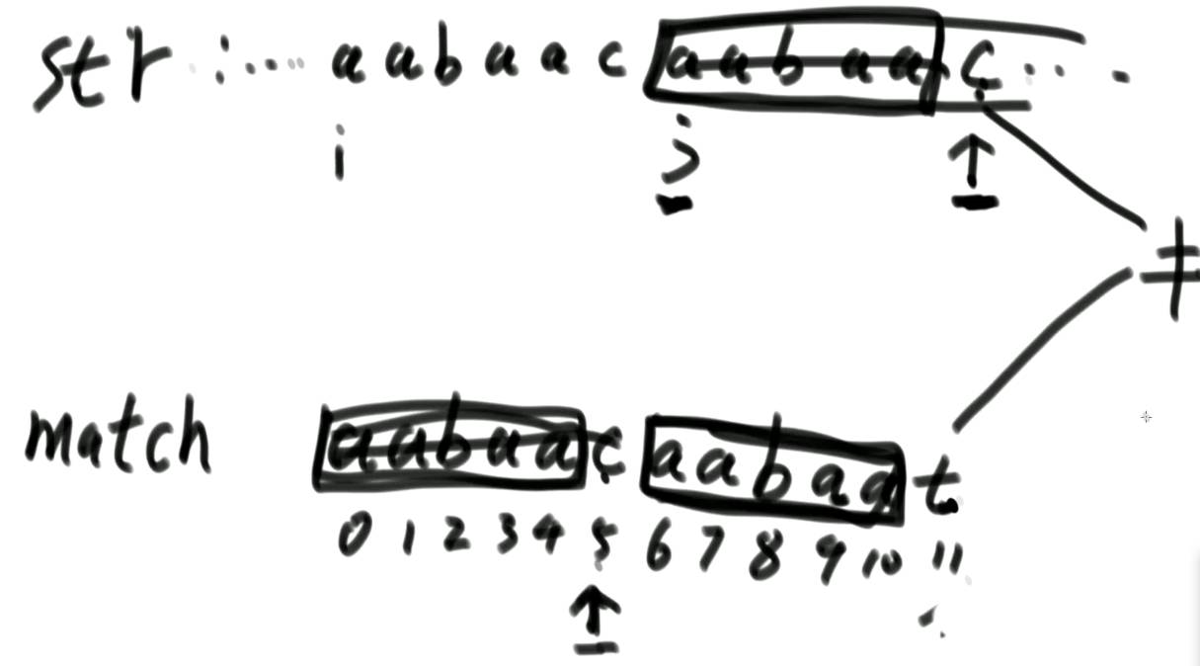 str :... aabaac aabaa c ...
i j ↑
≠
match aabaac aabaat
0 1 2 3 4 5 6 7 8 9 10 11
↑